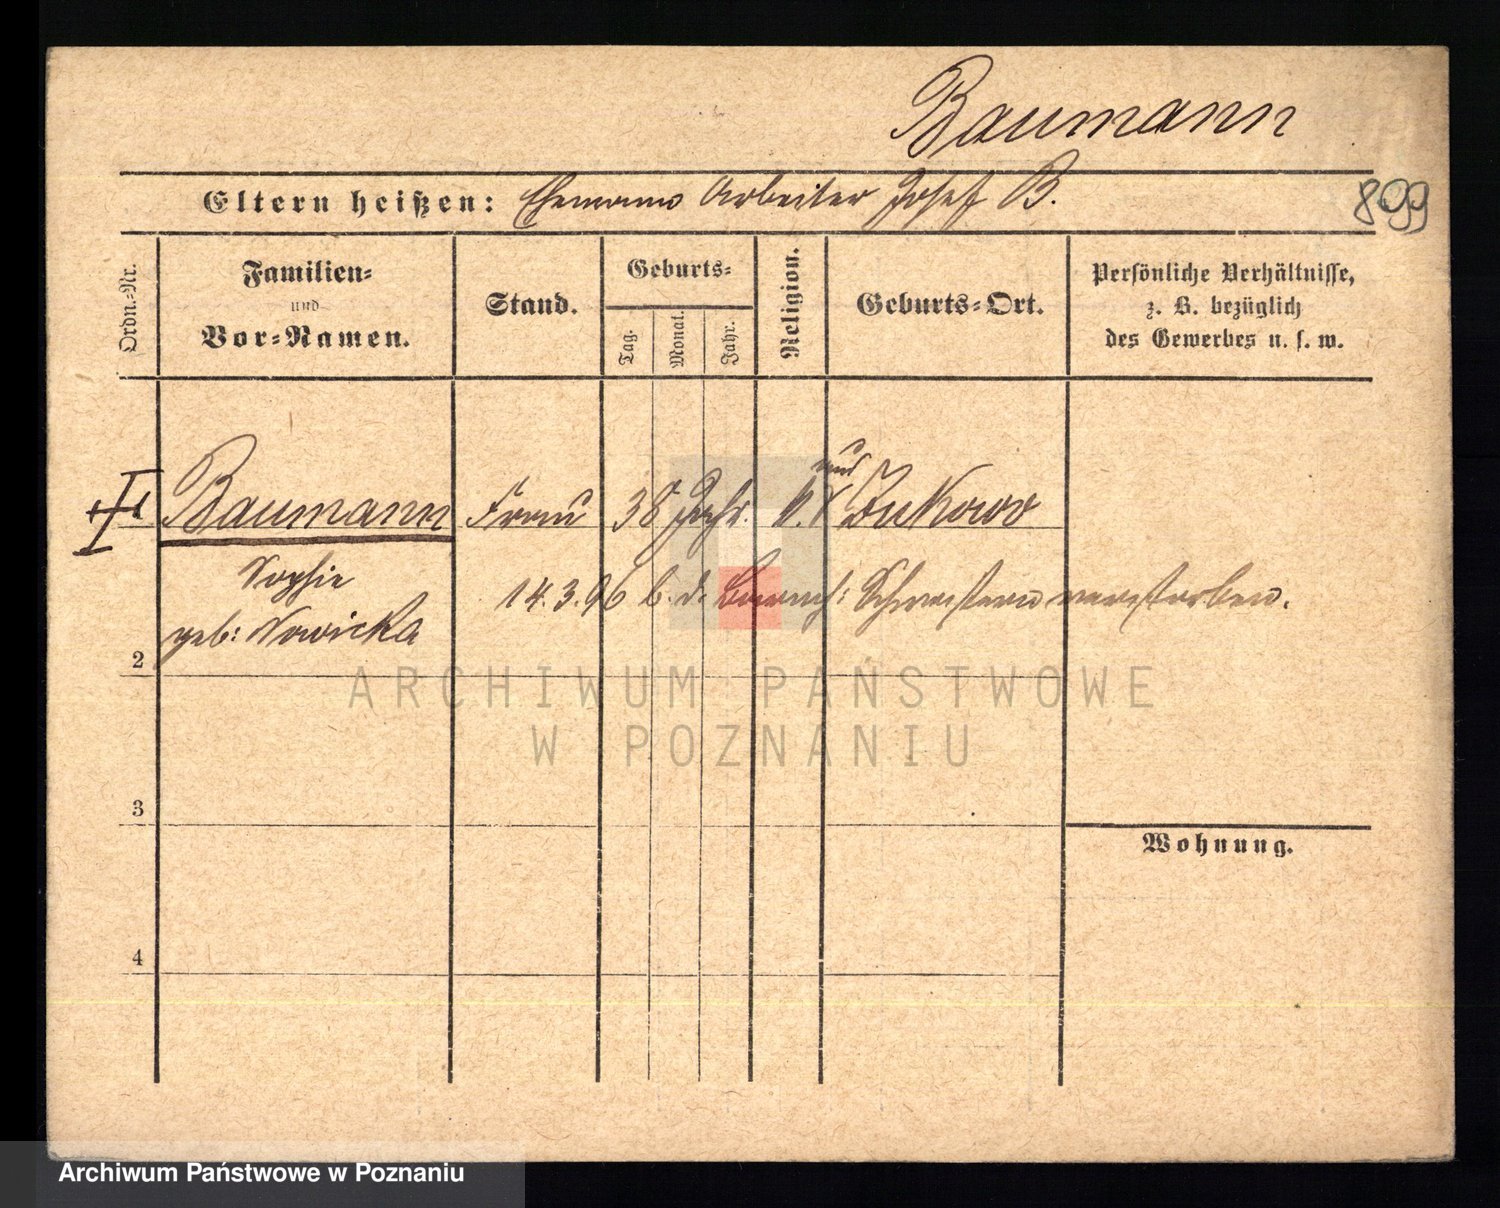 Baumann
Eltern heißen: Ehemann Arbeiter Josef B.
899
Ordn.-Nr.
Familien-
und
Vor-Namen.
Stand.
Geburts-
Tag.
Monat.
Jahr.
Religion.
Geburts-Ort.
Persönliche Verhältnisse,
z. B. bezüglich
des Gewerbes u. s. w.
Baumann Frau 38 Jahr. K. aus Zukowo
Sophie
14.3.96 b. d. Barmh: Schwestern verstorben.
geb: Nowicka
2
ARCHIWUM PAŃSTWOWE
W POZNANIU
3
Wohnung.
4
Archiwum Państwowe w Poznaniu